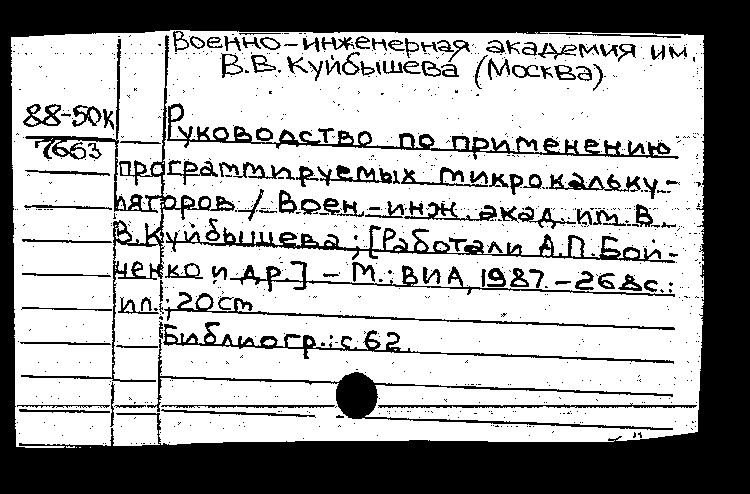 Военно-инженерная академия им.
В.В. Куйбышева (Москва)
88-50К
7663
Руководство по применению
программируемых микрокальку-
ляторов / Воен.-инж. акад. им. В.
В. Куйбышева ; [Работали А.П. Бой-
ченко и др.] – М. : ВИА, 1987. – 268с. :
ил. ; 20 см
Библиогр.: с. 62.